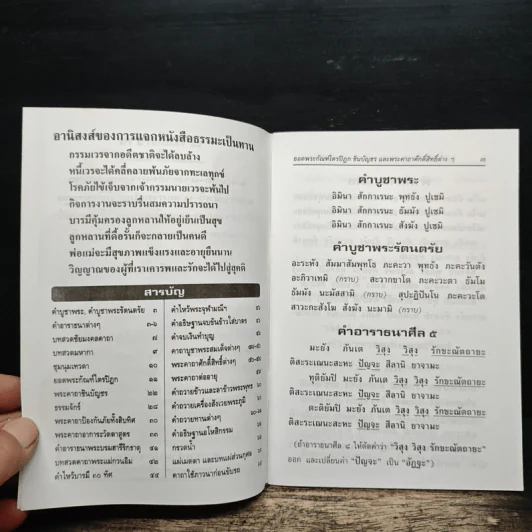 อานิสงส์ของการแจกหนังสือธรรมะเป็นทาน
กรรมเวรจากอดีตชาติจะได้ลบล้าง
หนี้เวรจะได้คลี่คลายพ้นภัยจากทะเลทุกข์
โรคภัยไข้เจ็บจากเจ้ากรรมนายเวรจะพ้นไป
กิจการงานจะราบรื่นสมความปรารถนา
บารมีคุ้มครองลูกหลานให้อยู่เย็นเป็นสุข
ลูกหลานที่ดื้อรั้นก็จะกลายเป็นคนดี
พ่อแม่จะมีสุขภาพแข็งแรงและอายุยืนนาน
วิญญาณของผู้ที่เราเคารพและรักจะได้ไปสู่สุคติ
สารบัญ
คำบูชาพระ, คำบูชาพระรัตนตรัย ๓
คำอาราธนาต่างๆ ๓-๖
บทสวดชัยมงคลคาถา ๗
บทสวดมหากา ๙
ชุมนุมเทวดา ๑๐
ยอดพระกัณฑ์ไตรปิฎก ๑๑
พระคาถาชินบัญชร ๒๒
ธรรมจักร์ ๒๘
พระคาถาป้องกันภัยทั้งสิบทิศ ๓๑
พระคาถาอาการะวัตตาสูตร ๓๓
คำอาราธนาพระบรมสารีริกธาตุ
บทสวดคาถาพระแม่กวนอิม
คำไหว้บารมี ๓๐ ทัศ ๔๔
คำไหว้พระจุฬามณีฯ
คำอธิษฐานจบขันข้าวใส่บาตร
คำจบเงินทำบุญ
คาถาบูชาพระสมเด็จต่างๆ
พระคาถาศักดิ์สิทธิ์ต่างๆ
พระคาถาต่ออายุ
คำถวายข้าวและลาข้าวพระพุทธ
คำถวายเครื่องสังเวยพระภูมิ
คำถวายทานต่างๆ
คำอธิษฐานอโหสิกรรม
กรวดน้ำ
แผ่เมตตา และบทแผ่ส่วนกุศล
คาถาใช้ภาวนาก่อนขับรถ
ยอดพระกัณฑ์ไตรปิฎก ชินบัญชร และพระคาถาศักดิ์สิทธิ์ต่าง ๆ ๓
คำบูชาพระ
อิมินา สักกาเรนะ พุทธัง ปูเชมิ
อิมินา สักกาเรนะ ธัมมัง ปูเชมิ
อิมินา สักกาเรนะ สังฆัง ปูเชมิ
คำบูชาพระรัตนตรัย
อะระหัง สัมมาสัมพุทโธ ภะคะวา พุทธัง ภะคะวันตัง
อะภิวาเทมิ (กราบ) สะวากขาโต ภะคะวะตา ธัมโม
ธัมมัง นะมัสสามิ (กราบ) สุปะฏิปันโน ภะคะวะโต
สาวะกะสังโฆ สังฆัง นะมามิ (กราบ)
คำอาราธนาศีล ๕
มะยัง ภันเต วิสุง วิสุง รักขะณัตถายะ
ติสะระเณนะสะหะ ปัญจะ สีลานิ ยาจามะ
ทุติยัมปิ มะยัง ภันเต วิสุง วิสุง รักขะณัตถายะ
ติสะระเณนะสะหะ ปัญจะ สีลานิ ยาจามะ
ตะติยัมปิ มะยัง ภันเต วิสุง วิสุง รักขะณัตถายะ
ติสะระเณนะสะหะ ปัญจะ สีลานิ ยาจามะ
(ถ้าอาราธนาศีล ๘ ให้ตัดคำว่า "วิสุง วิสุง รักขะณัตถายะ"
ออก และเปลี่ยนคำ "ปัญจะ" เป็น "อัฏฐะ")